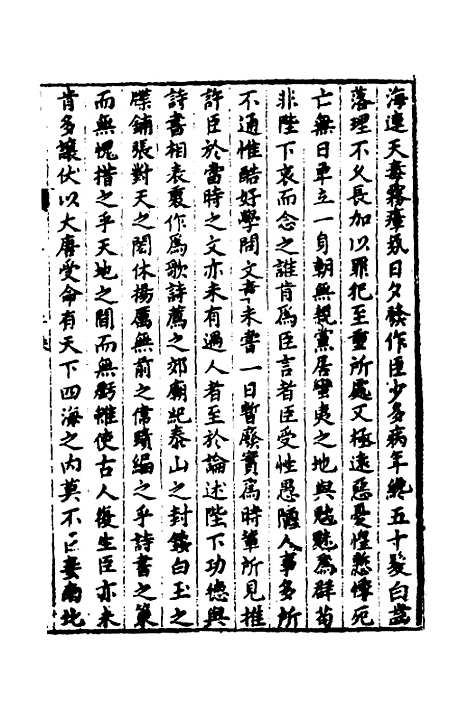 海連天毒霧瘴氛日夕發作臣少多病年纔五十髮白齒
落理不久長加以罪犯至重所處又極遠惡憂惶慙悸死
亡無日單立一身朝無親黨居蠻夷之地與魑魅爲群苟
非陛下哀而念之誰肯爲臣言者臣受性愚陋人事多所
不通惟酷好學問文章未嘗一日暫廢實爲時輩所見推
許臣於當時之文亦未有過人者至於論述陛下功德與
詩書相表裏作爲歌詩薦之郊廟紀泰山之封鏤白玉之
牒鋪張對天之閎休揚厲無前之偉蹟編之乎詩書之策
而無愧措之乎天地之間而無虧雖使古人復生臣亦未
肯多讓伏以大唐受命有天下四海之內莫不臣妾南北